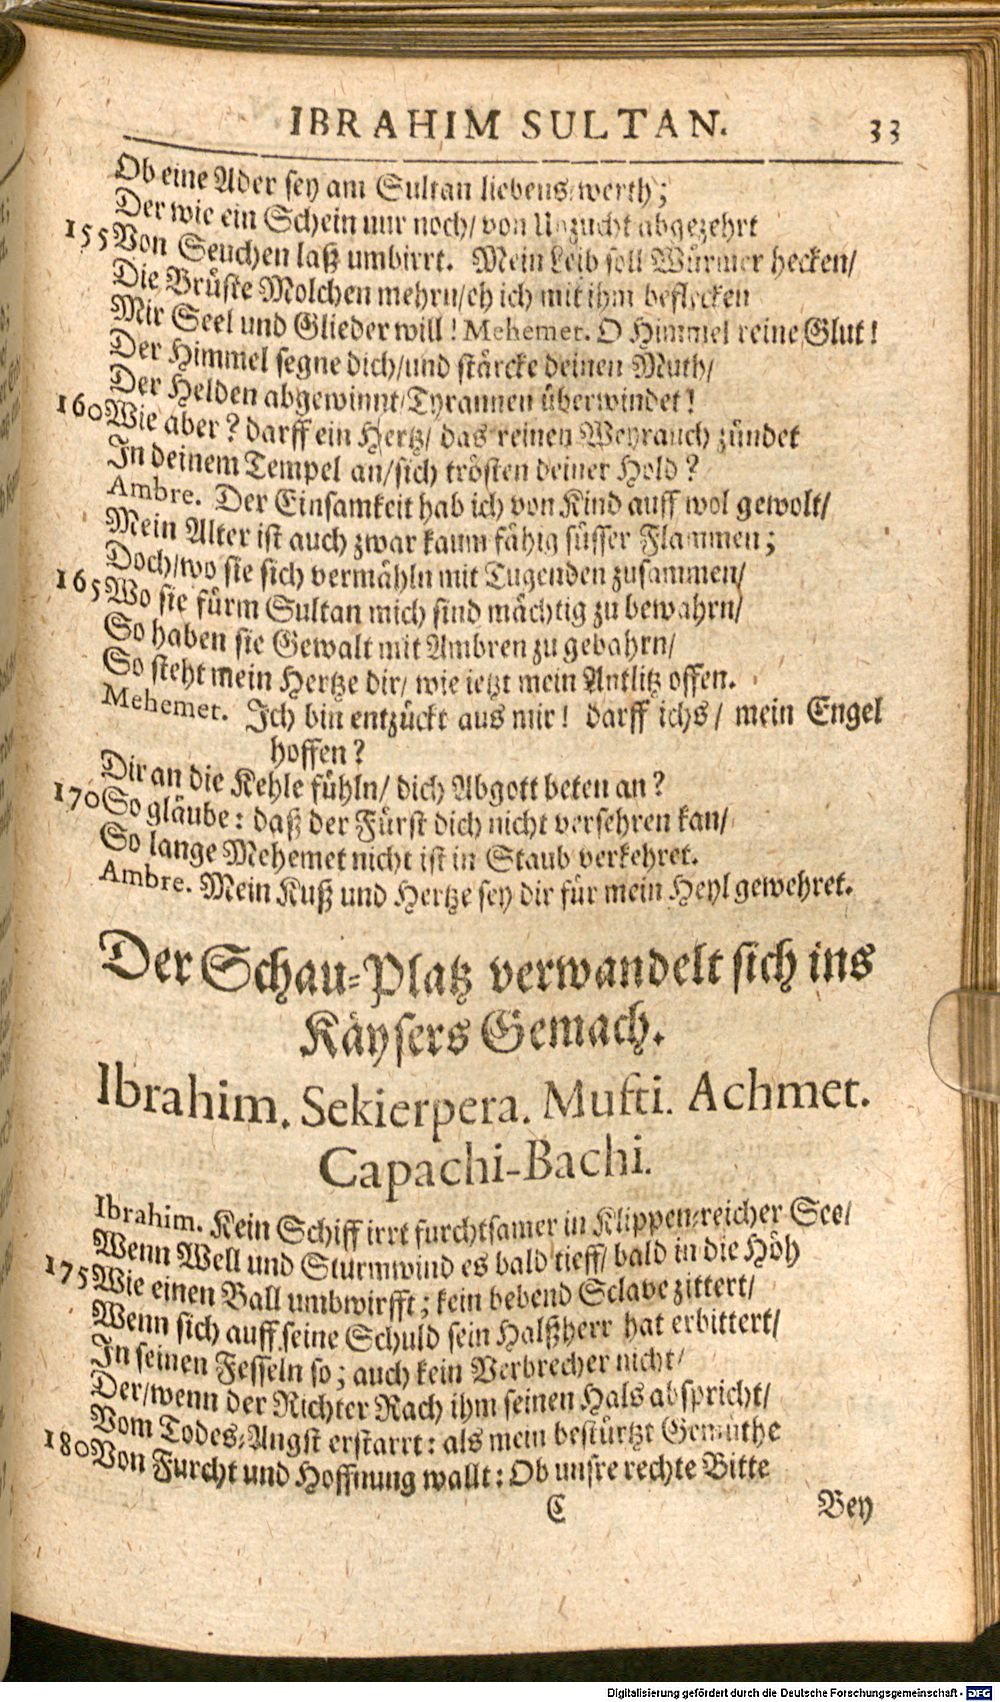 IBRAHIM SULTAN. 33
Ob eine Ader sey am Sultan liebens-werth;
Der wie ein Schein nur noch/ von Unzucht abgezehrt
155 Von Seuchen laß umbirrt. Mein Leib soll Würmer hecken/
Die Brüste Molchen mehrn/eh ich mit ihm beflecken
Mir Seel und Glieder will! Mehemet. O Himmel reine Glut!
Der Himmel segne dich/und stärcke deinen Muth/
Der Helden abgewinnt/Tyrannen überwindet!
160 Wie aber? darff ein Hertz/ das reinen Weyrauch zündet
In deinem Tempel an/sich trösten deiner Hold?
Ambre. Der Einsamkeit hab ich von Kind auff wol gewolt/
Mein Alter ist auch zwar kaum fähig süsser Flammen;
Doch/wo sie sich vermähln mit Tugenden zusammen/
165 Wo sie fürm Sultan mich sind mächtig zu bewahrn/
So haben sie Gewalt mit Ambren zu gebahrn/
So steht mein Hertze dir/ wie ietzt mein Antlitz offen.
Mehemet. Ich bin entzückt aus mir! darff ichs/ mein Engel
hoffen?
Dir an die Kehle fühln/ dich Abgott beten an?
170 So gläube: daß der Fürst dich nicht versehren kan/
So lange Mehemet nicht ist in Staub verkehret.
Ambre. Mein Kuß und Hertze sey dir für mein Heyl gewehret.
Der Schau-Platz verwandelt sich ins
Käysers Gemach.
Ibrahim. Sekierpera. Mufti. Achmet.
Capachi-Bachi.
Ibrahim. Kein Schiff irrt furchtsamer in Klippen-reicher See/
Wenn Well und Sturmwind es bald tieff/ bald in die Höh
175 Wie einen Ball umbwirfft; kein bebend Sclave zittert/
Wenn sich auff seine Schuld sein Halßherr hat erbittert/
In seinen Fesseln so; auch kein Verbrecher nicht/
Der/wenn der Richter Rach ihm seinen Hals abspricht/
Vom Todes-Angst erstarrt: als mein bestürtzt Gemüthe
180 Von Furcht und Hoffnung wallt: Ob unsre rechte Bitte
C Bey
Digitalisierung gefördert durch die Deutsche Forschungsgemeinschaft - DFG